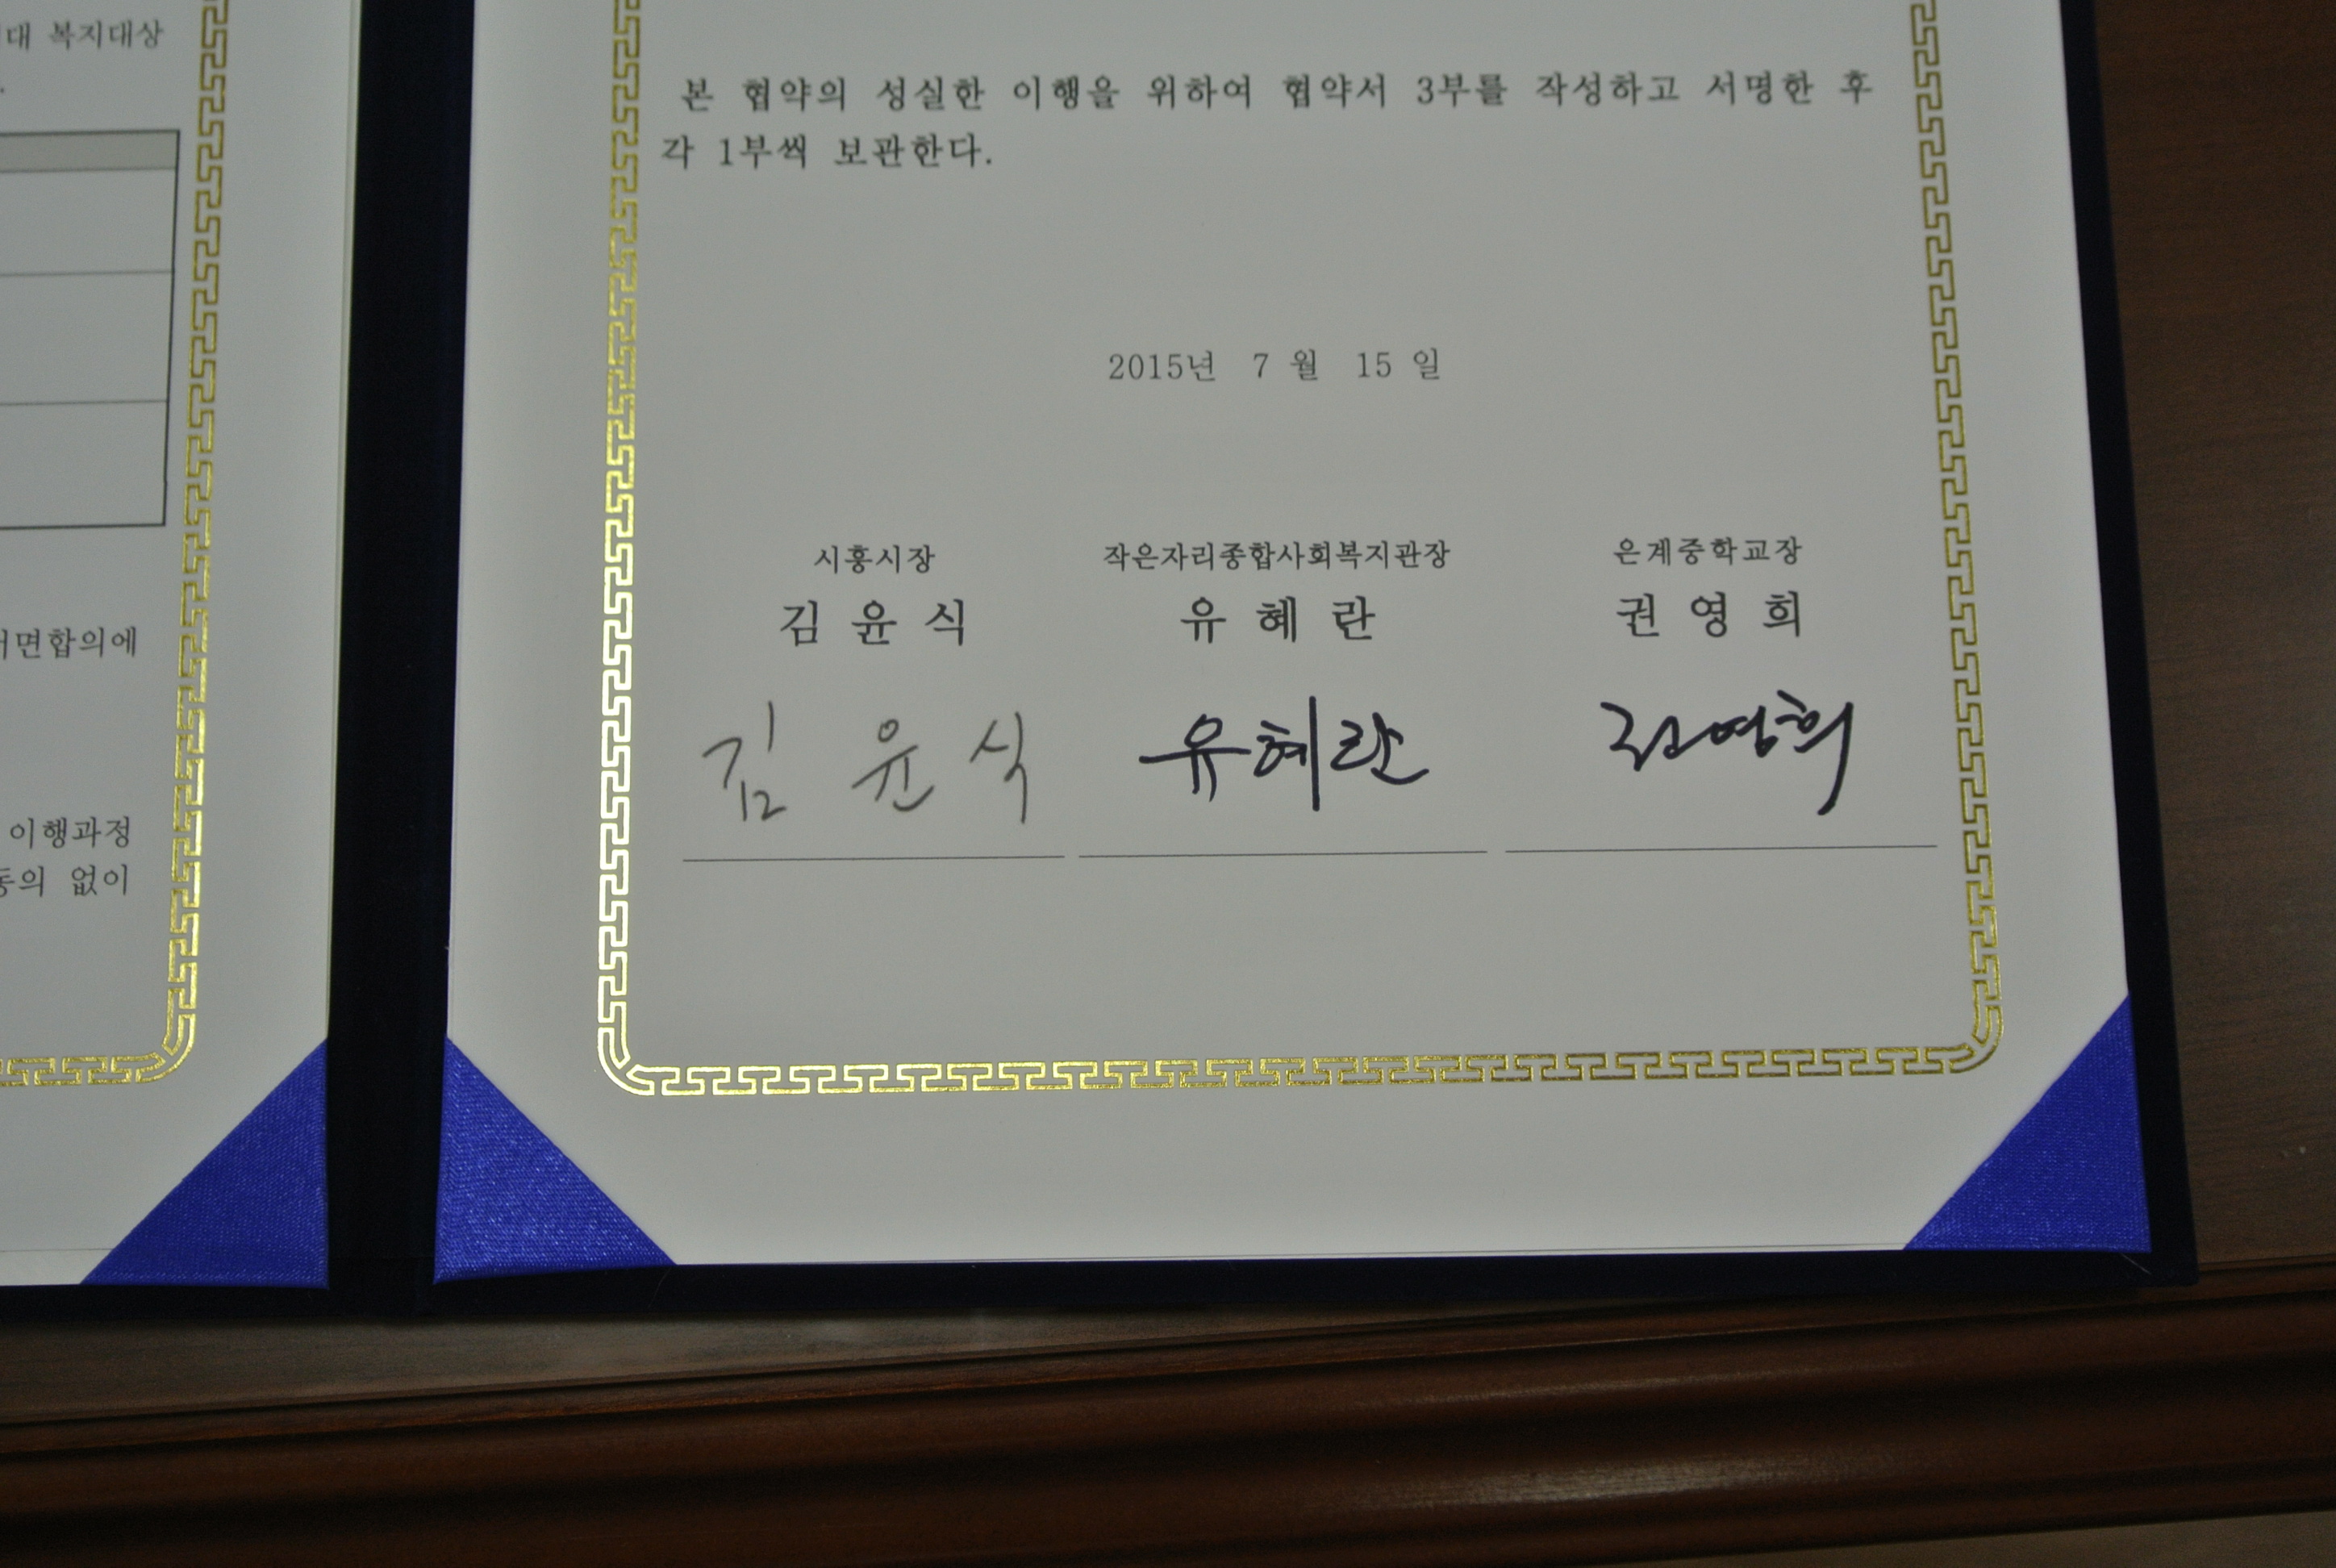 대 복지대상
면합의에
이행과정
동의 없이
본 협약의 성실한 이행을 위하여 협약서 3부를 작성하고 서명한 후
각 1부씩 보관한다.
2015년 7 월 15 일
시흥시장 작은자리종합사회복지관장 은계중학교장
김 윤 식 유 혜 란 권 영 희
김 윤 식 유혜란 권영희